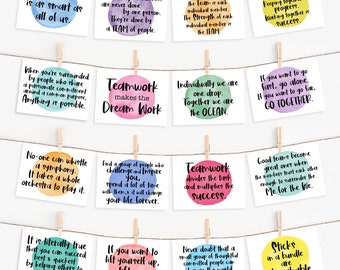 is as smart as
all of us.
never done
by one person,
they're done by
a TEAM of people.
the Team is each
individual member.
The Strength of each
individual member is
the TEAM.
Keeping together is
progress.
Working together is
success.
When you're surrounded
by people who share
a passionate commitment
around a common purpose,
Anything is possible.
Teamwork
makes the
Dream Work
Individually we are
one drop.
Together we are
the OCEAN.
If you want to go
fast, go alone.
If you want to go far,
GO TOGETHER.
No-one can whistle
a symphony.
It takes a whole
orchestra to play it.
Find a group of people who
challenge and inspire
you,
spend a lot of time
with them, & it will change
your life forever.
Teamwork
divides the task
and multiplies the
success.
Good teams become
great ones when
the members trust each other
enough to surrender the
Me for the We.
It is literally true
that you can succeed
best & quickest
by helping others to
If you want to
lift yourself up,
Never doubt that a
small group of thoughtful
committed people can
Sticks
in a bundle
are